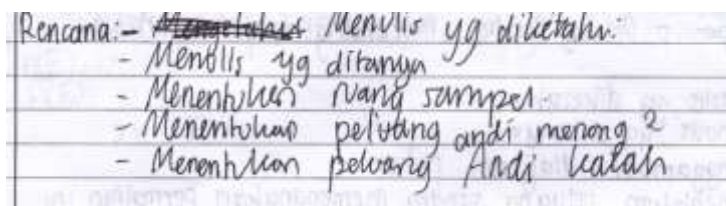 Rencana: - Mengetahui Menulis yg diketahui.
- Menulis yg ditanya
- Menentukan ruang sampel.
- Menentukan peluang andi menang?
- Menentukan peluang Andi kalah